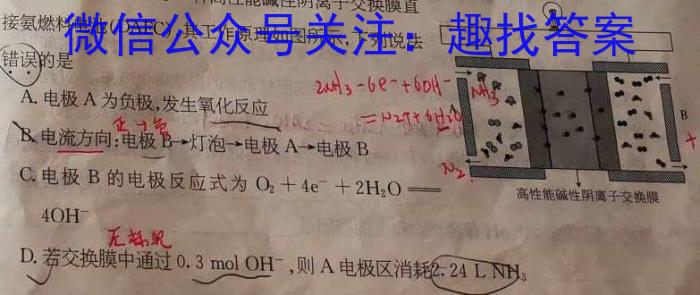 种高性能碱性阴离子交换膜直
接氨燃料
工作原理如图所示,下列说法
微信公众号关注:趣找答案
错误的是
2NH₃-6e⁻+6OH⁻
=N₂↑+6H₂O
NH₃
A. 电极 A 为负极,发生氧化反应
B
+
B. 电流方向:电极 B→灯泡→电极 A→电极 B
N₂
C. 电极 B 的电极反应式为 O₂+4e⁻+2H₂O═
高性能碱性阴离子交换膜
4OH⁻
D. 若交换膜中通过 0.3 mol OH⁻,则 A 电极区消耗2.24 L NH₃